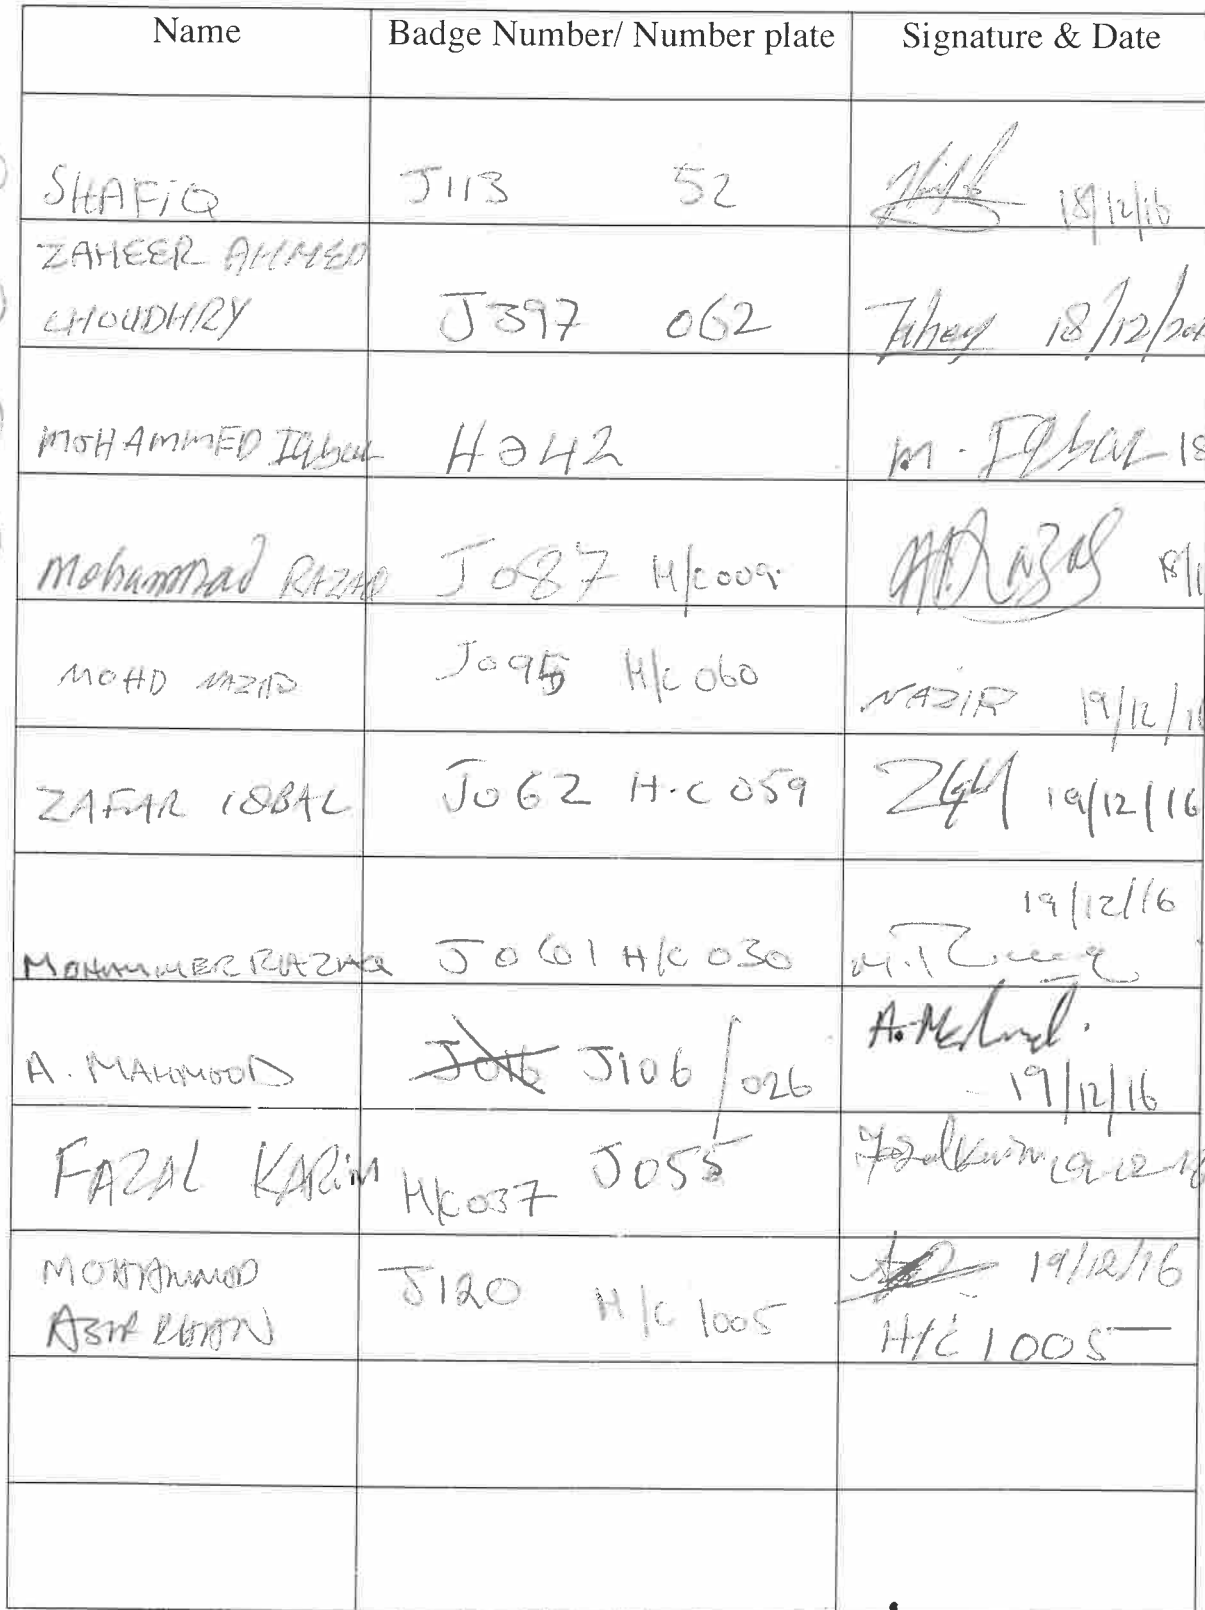 Name Badge Number/ Number plate Signature & Date
SHAFiQ J113 52 18/12/16
ZAHEER AHMED
CHOUDHRY J397 062 18/12/20
MOHAMMED Iqbal H042 M. Iqbal 18
Mohammad RAZAQ J087 H/C 009 18/1
MOHD NAZIR J095 H/C 060 NAZIR 19/12/1
ZAFAR IQBAL J062 H.C 059 19/12/16
19/12/16
J061 H/C 030
A. MAHMOOD J016 J106 / 026 A. Mahmood.
19/12/16
FAZAL KARiM H/C 037 J055 Fazal Karim 19-12-16
MOHAMMOD J120 H/C 1005 19/12/16
KHAN H/C 1005